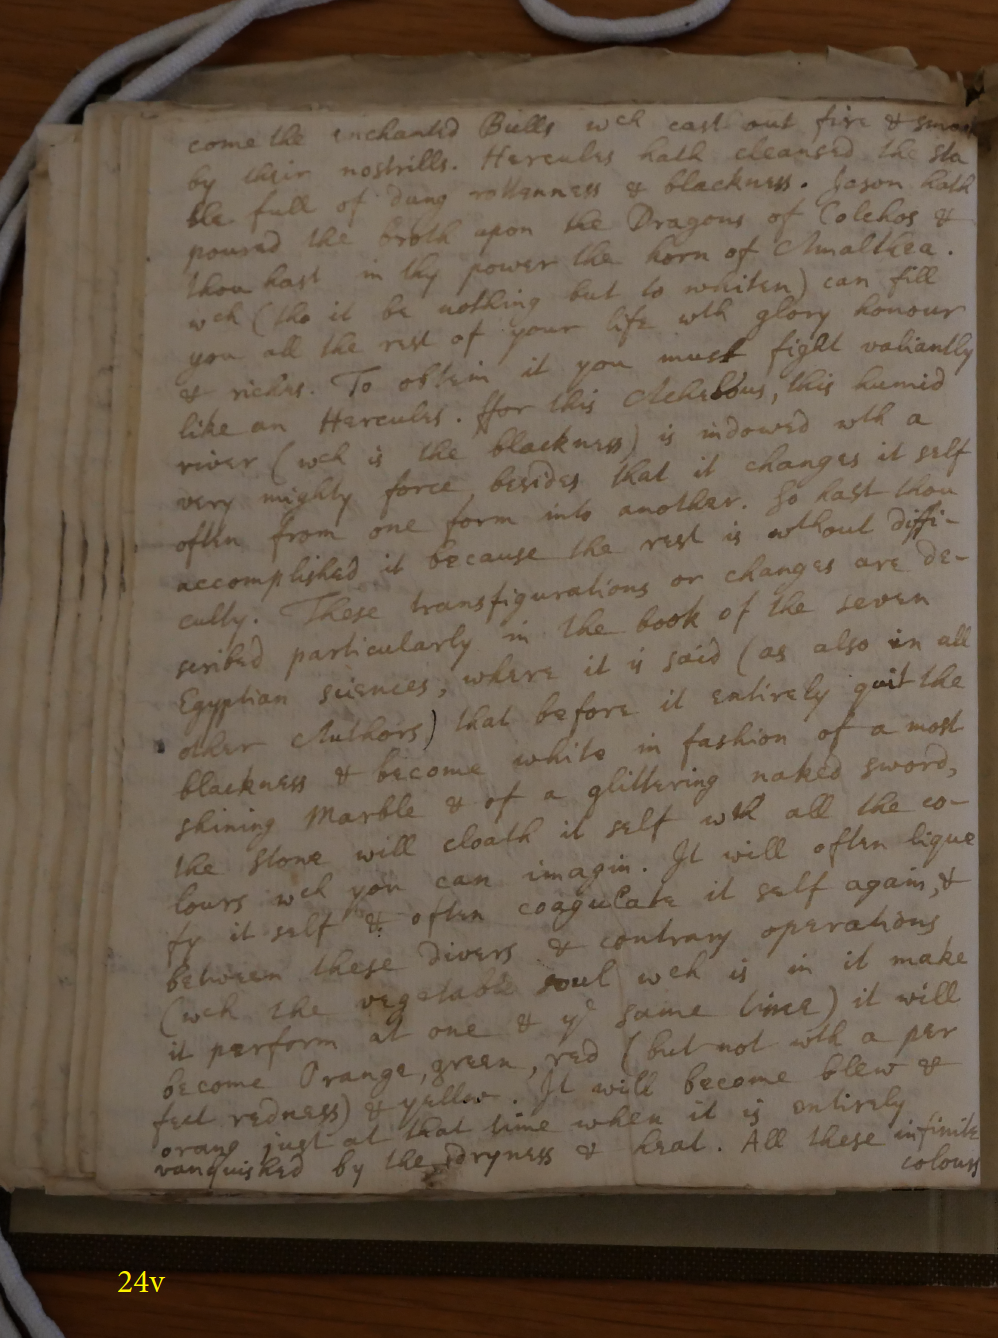 come the inchanted Bulls wch cast out fire & smoak
by their nostrills. Hercules hath cleansed the sta
ble full of dung rottenness & blackness. Jason hath
poured the broth upon the Dragons of Colchos &
thou hast in thy power the horn of Amalthea.
wch (tho it be nothing but to whiten) can fill
you all the rest of your life wth glory honour
& riches. To obtein it you must fight valiantly
like an Hercules. ffor this Achelous, this humid
river (wch is the blackness) is indowed wth a
very mighty force, besides that it changes it self
often from one form into another. So hast thou
accomplished it because the rest is wthout diffi-
culty. These transfigurations or changes are de-
scribed particularly in the book of the seven
Egyptian sciences, where it is said (as also in all
other Authors) that before it entirely quit the
blackness & become white in fashion of a most
shining Marble & of a glittering naked sword,
the stone will cloath it self wth all the co-
lours wch you can imagin. It will often lique
fy it self & often coagulate it self again, &
between these divers & contrary operations
(wch the vegetable soul wch is in it make
it perform at one & ye same time) it will
become Orange, green, red (but not wth a per
fect redness) & yellow. It will become blew &
orang just at that time when it is entirely
vanquished by the dryness & heat. All these infinite
colours
24v